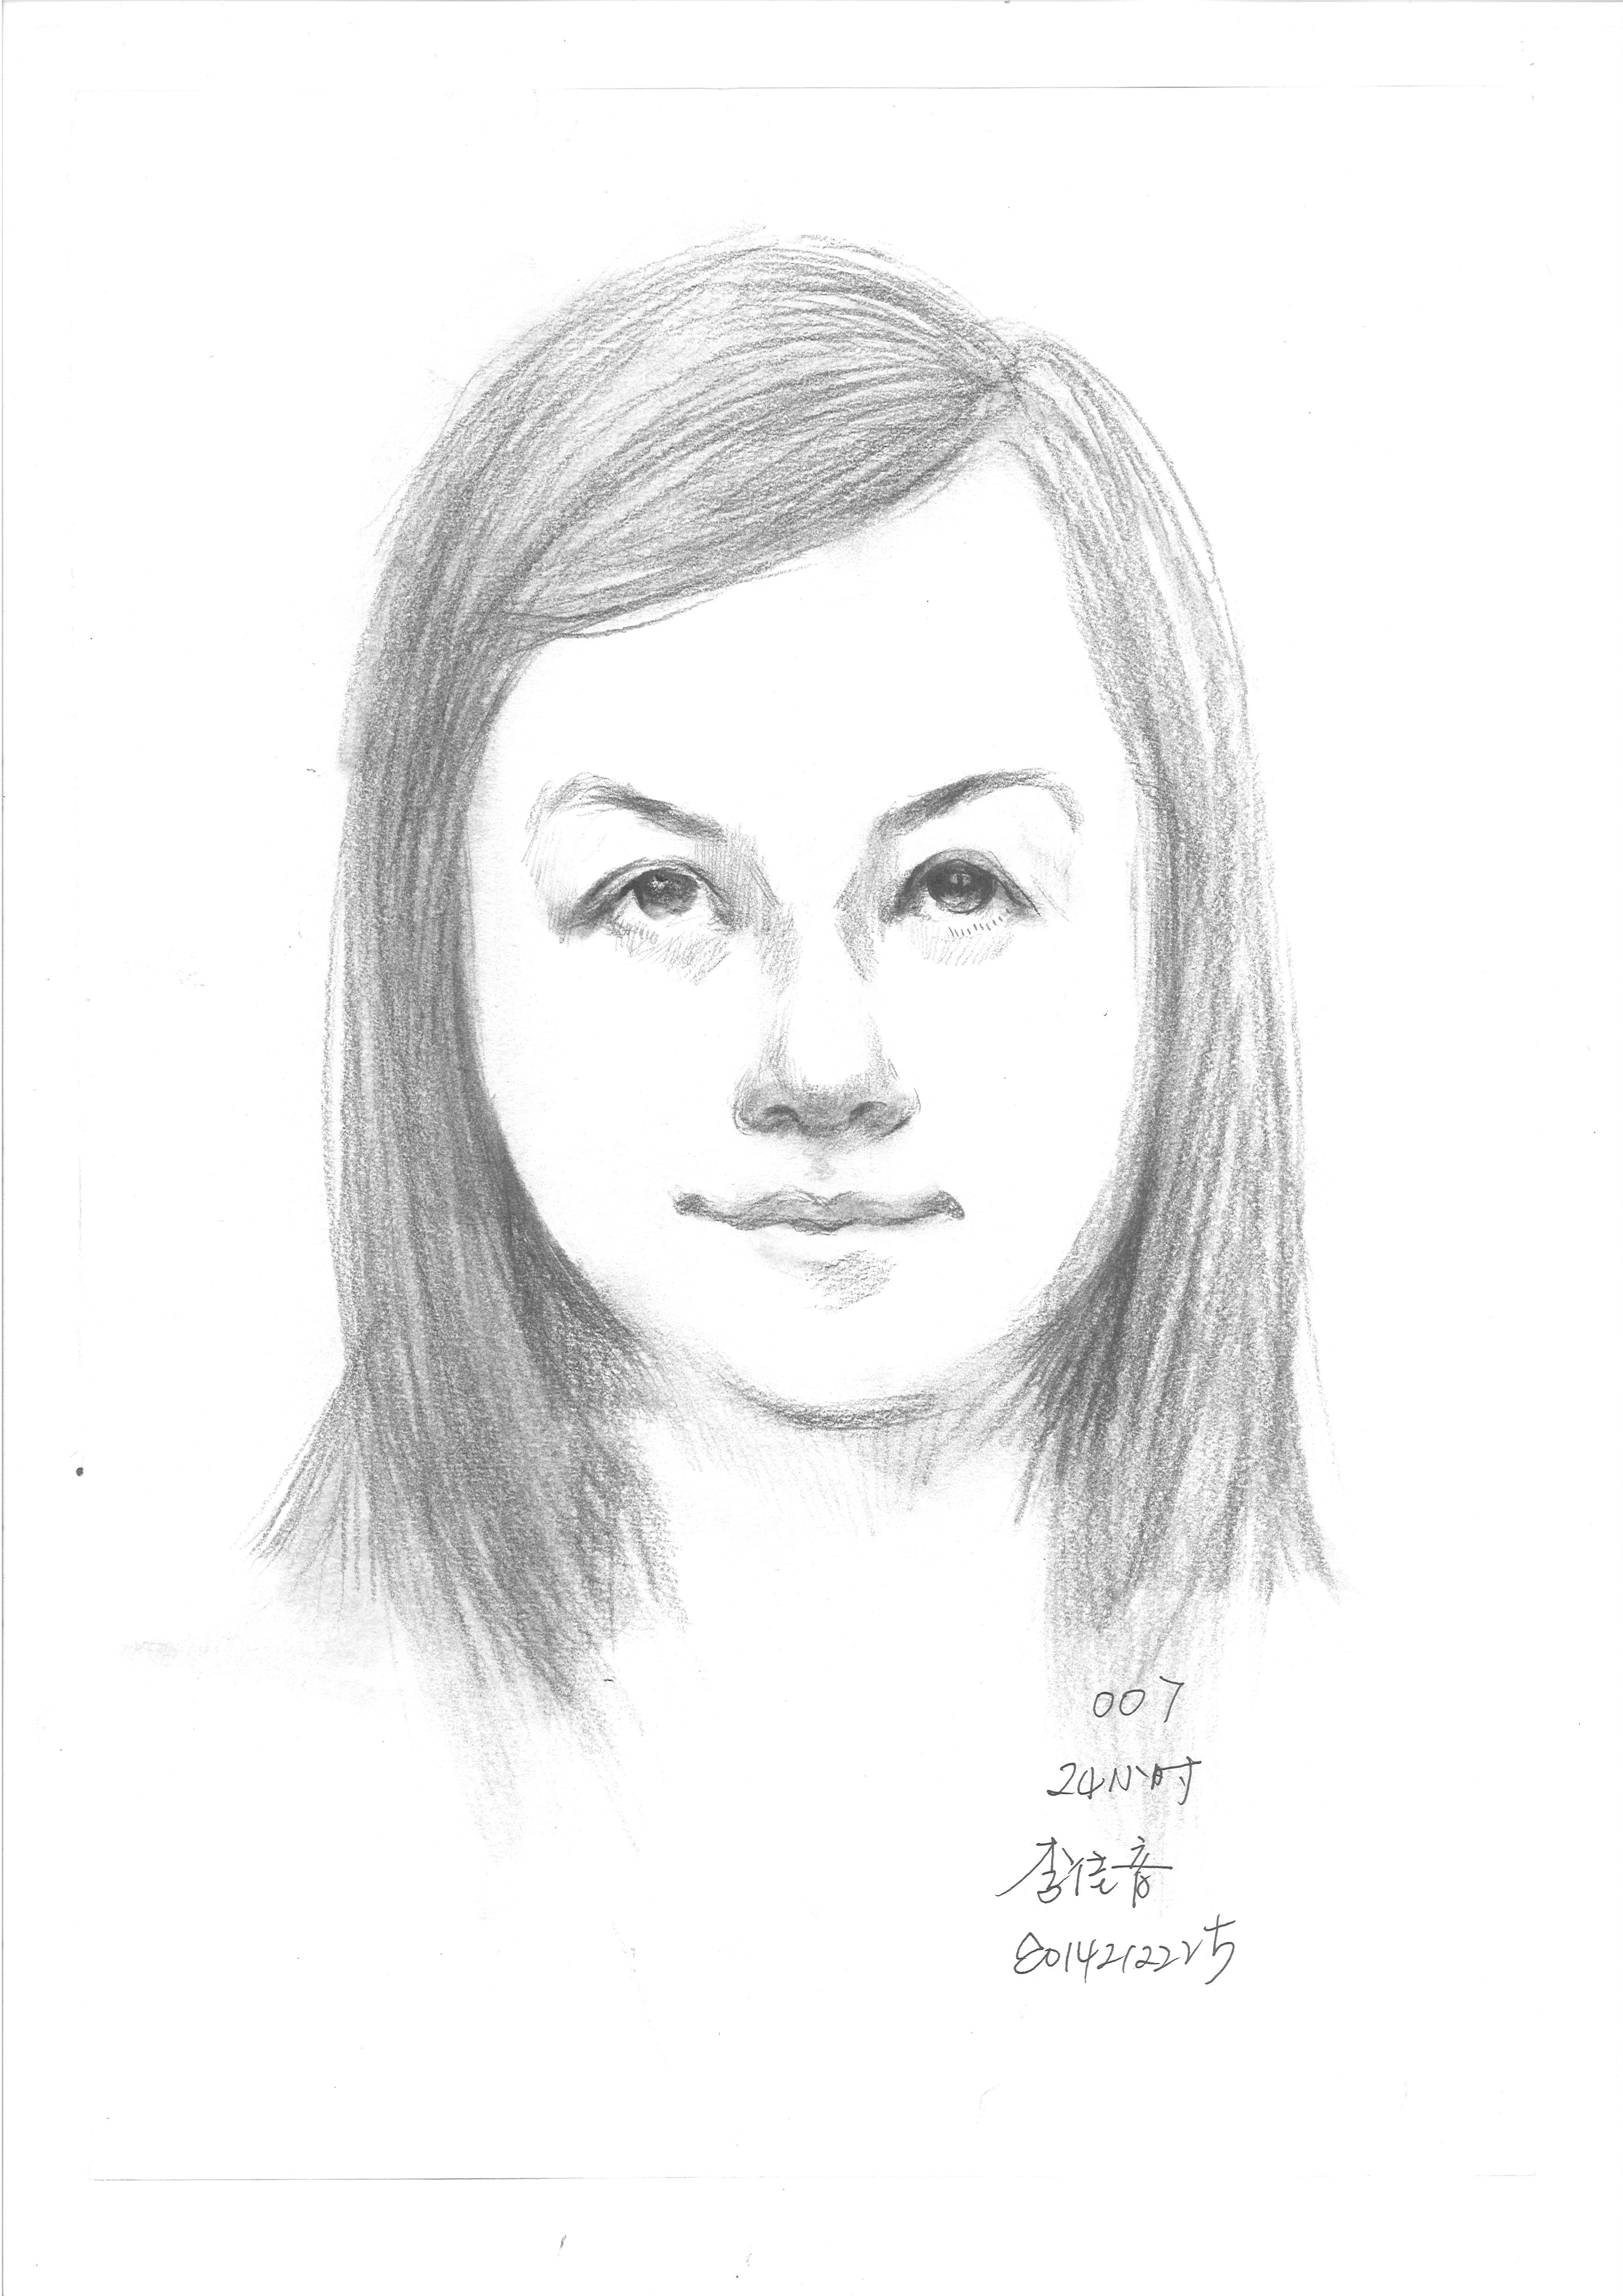 007
24小时
李佳音
8014212225